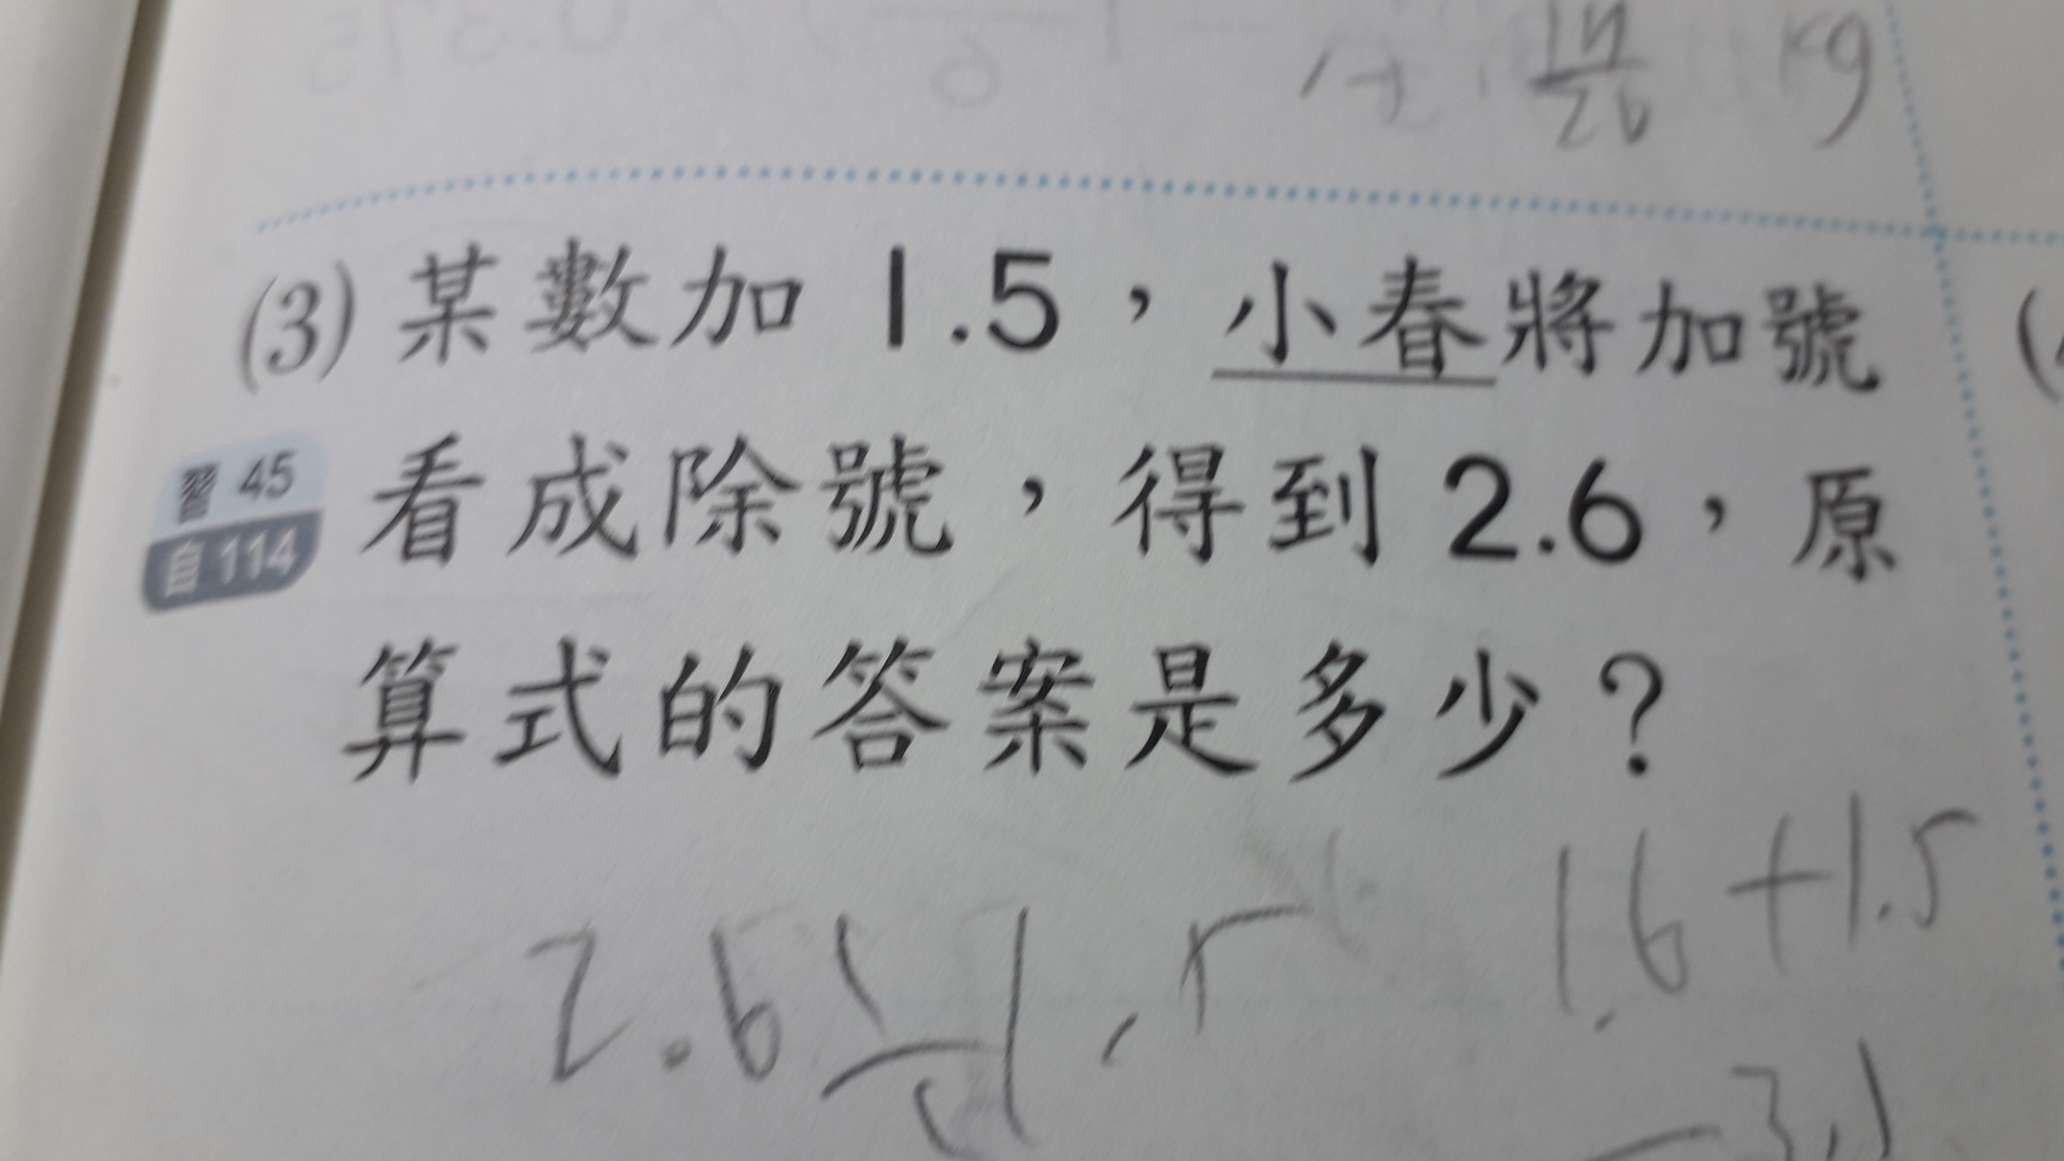 17/26 kg
(3) 某數加 1.5，小春將加號
習 45
看成除號，得到 2.6，原
自 114
算式的答案是多少？
1.6+1.5
2.6÷1.5
=3.1